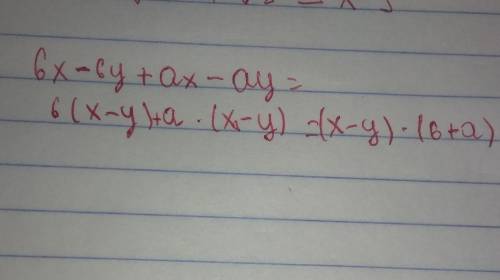 6x-6y+ax-ay=
6(x-y)+a·(x-y)=(x-y)·(6+a)